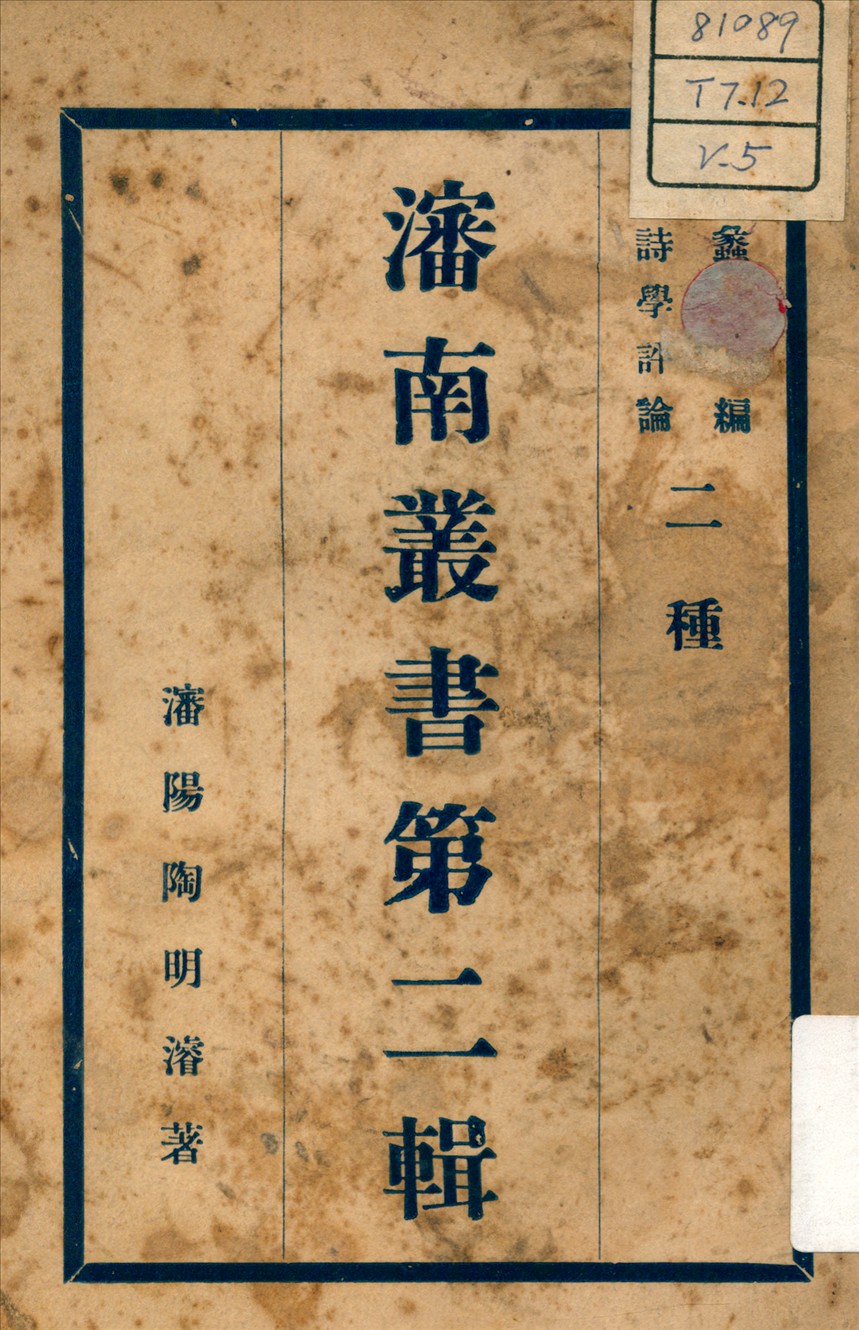 81089
T7.12
V.5
蠡 編
詩學評論
二種
瀋南叢書第二輯
瀋陽陶明濬著